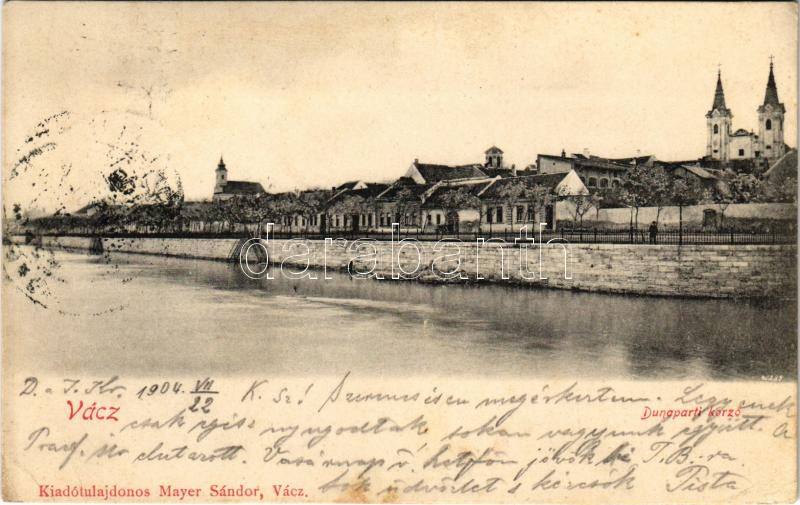 darabanth
1904 VII
22
K. Sz! Szerencsésen megérkeztem. Legyenek
Vácz
Dunaparti korzó
csak egész nyugodtak sokan vagyunk együtt. A
elutazott. Vasárnap v. hétfőn jövök ki T. B.-ra.
Kiadótulajdonos Mayer Sándor, Vácz.
Sok üdvözlet s kézcsók Pista